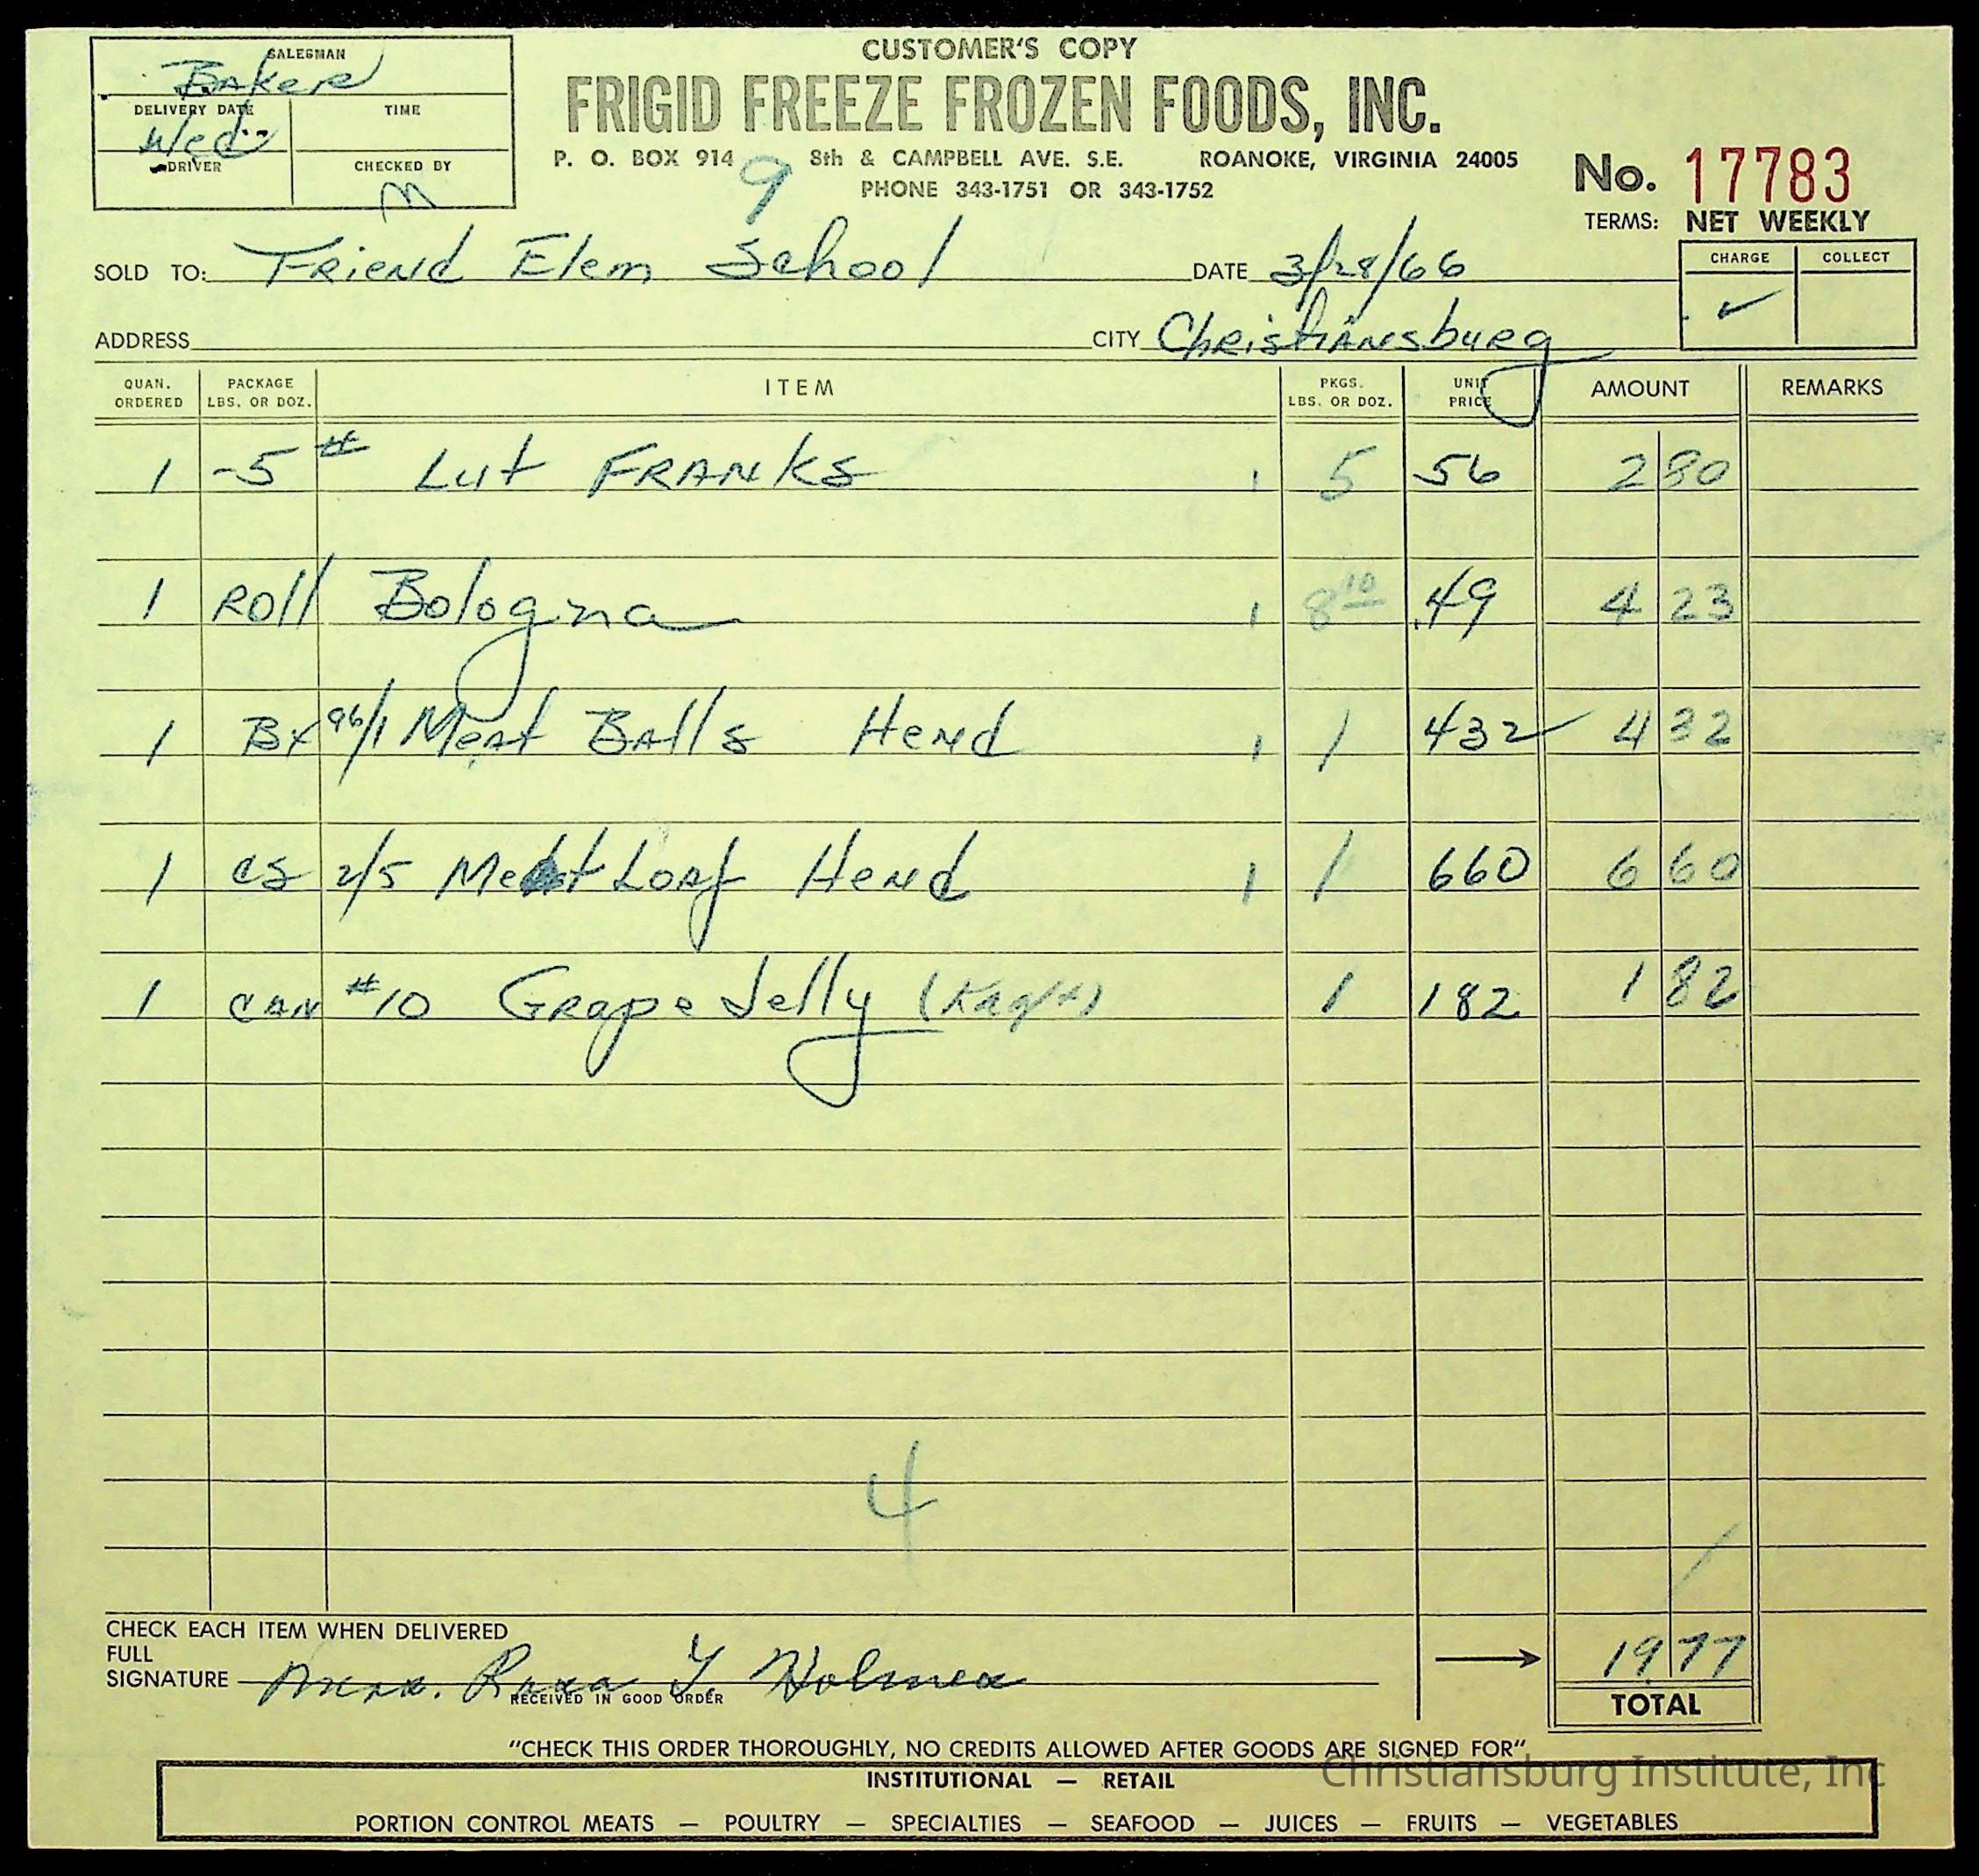 CUSTOMER'S COPY
FRIGID FREEZE FROZEN FOODS, INC.
P. O. BOX 914 8th & CAMPBELL AVE. S.E. ROANOKE, VIRGINIA 24005
PHONE 343-1751 OR 343-1752
9
SALESMAN
Baker
DELIVERY DATE TIME
Wed
DRIVER CHECKED BY
M
No. 17783
TERMS: NET WEEKLY
CHARGE COLLECT
✓
SOLD TO: Friend Elem School DATE 3/28/66
ADDRESS CITY Christiansburg
QUAN. ORDERED PACKAGE LBS. OR DOZ. ITEM PKGS. LBS. OR DOZ. UNIT PRICE AMOUNT REMARKS
1 -5# Lut FRANKS 5 56 2 80
1 Roll Bologna 8 10 .49 4 23
1 Bx 96/1 Meat Balls Hend 1 432 4 32
1 cs 2/5 Meat Loaf Hend 1 660 6 60
1 can #10 Grape Jelly (Kraft) 1 182 1 82
4
CHECK EACH ITEM WHEN DELIVERED
FULL
SIGNATURE Mrs. Rosa Y. Holmes
RECEIVED IN GOOD ORDER
19 77
TOTAL
"CHECK THIS ORDER THOROUGHLY, NO CREDITS ALLOWED AFTER GOODS ARE SIGNED FOR"
Christiansburg Institute, Inc
INSTITUTIONAL — RETAIL
PORTION CONTROL MEATS — POULTRY — SPECIALTIES — SEAFOOD — JUICES — FRUITS — VEGETABLES